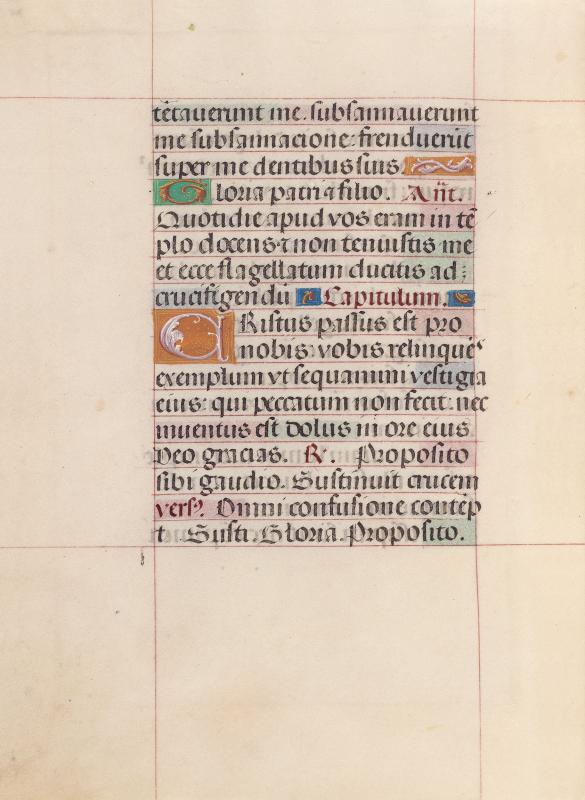 tētauerunt me. subsannauerunt
me subsannacione: frenduerūt
super me dentibus suis.
Gloria patri ⁊ filio. Añt.
Quotidie apud vos eram in tē
plo docens ⁊ non tenuistis me
et ecce flagellatum ducitis ad
crucifigendū Capitulum.
CRistus passus est pro
nobis: vobis relinquēs
exemplum vt sequamini vestigia
eius: qui peccatum non fecit: nec
inuentus est dolus in ore eius.
Deo gracias. R. Proposito
sibi gaudio. Sustinuit crucem
vers. Omni confusione contēp
t. Susti. Gloria. Proposito.